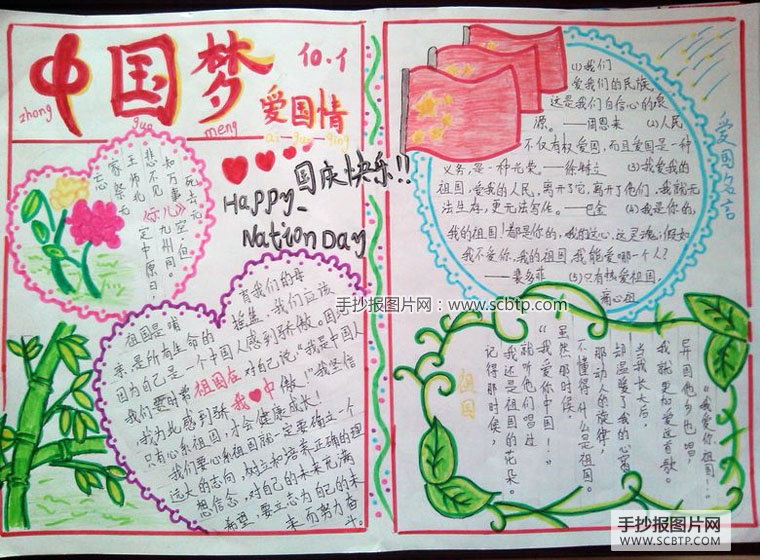 中国梦
zhong
guo
meng
10.1
爱国情
ai-guo-qing
国庆快乐!!
Happy
Nation Day
死去元
知万事空,但
悲不见九州同。
王师北定中原日,
家祭无
忘
《示儿》
祖国是哺育我们的母
亲,是所有生命的摇篮,我们应该
因为自己是一个中国人感到骄傲。因
我们要时常对自己说“我是中国人
祖国在
我♥中
,我为此感到骄傲!”我坚信
只有心系祖国,才会健康成长!
我们要心系祖国就一定要确立一个
远大的志向,树立和培养正确的理
想信念,对自己的未来充满
希望,要立志为自己的未
来而努力奋
斗。
爱国名言
(1)我们
爱我们的民族,
这是我们自信心的泉
源。——周恩来 (2)人民
不仅有权爱国,而且爱国是一种
义务,是一种光荣。——徐特立 (3)我爱我的
祖国,爱我的人民,离开了它,离开了他们,我就无
法生存,更无法写作。——巴金 (4)我是你的,
我的祖国!都是你的,我的这心,这灵魂;假如
我不爱你,我的祖国,我能爱哪一个人?
——裴多菲 (5)只有热爱祖国,
痛心祖
祖国
记得那时候,
我还是祖国的花朵。
就听他们唱过
“我爱你中国!”
虽然那时候,
不懂得什么是祖国。
那动人的旋律,
却温暖了我的心窝
当我长大后,
我就更加爱这首歌。
异国他乡也唱,
“我爱你祖国!”
手抄报图片网:www.scbtp.com
手抄报图片网
WWW.SCBTP.COM